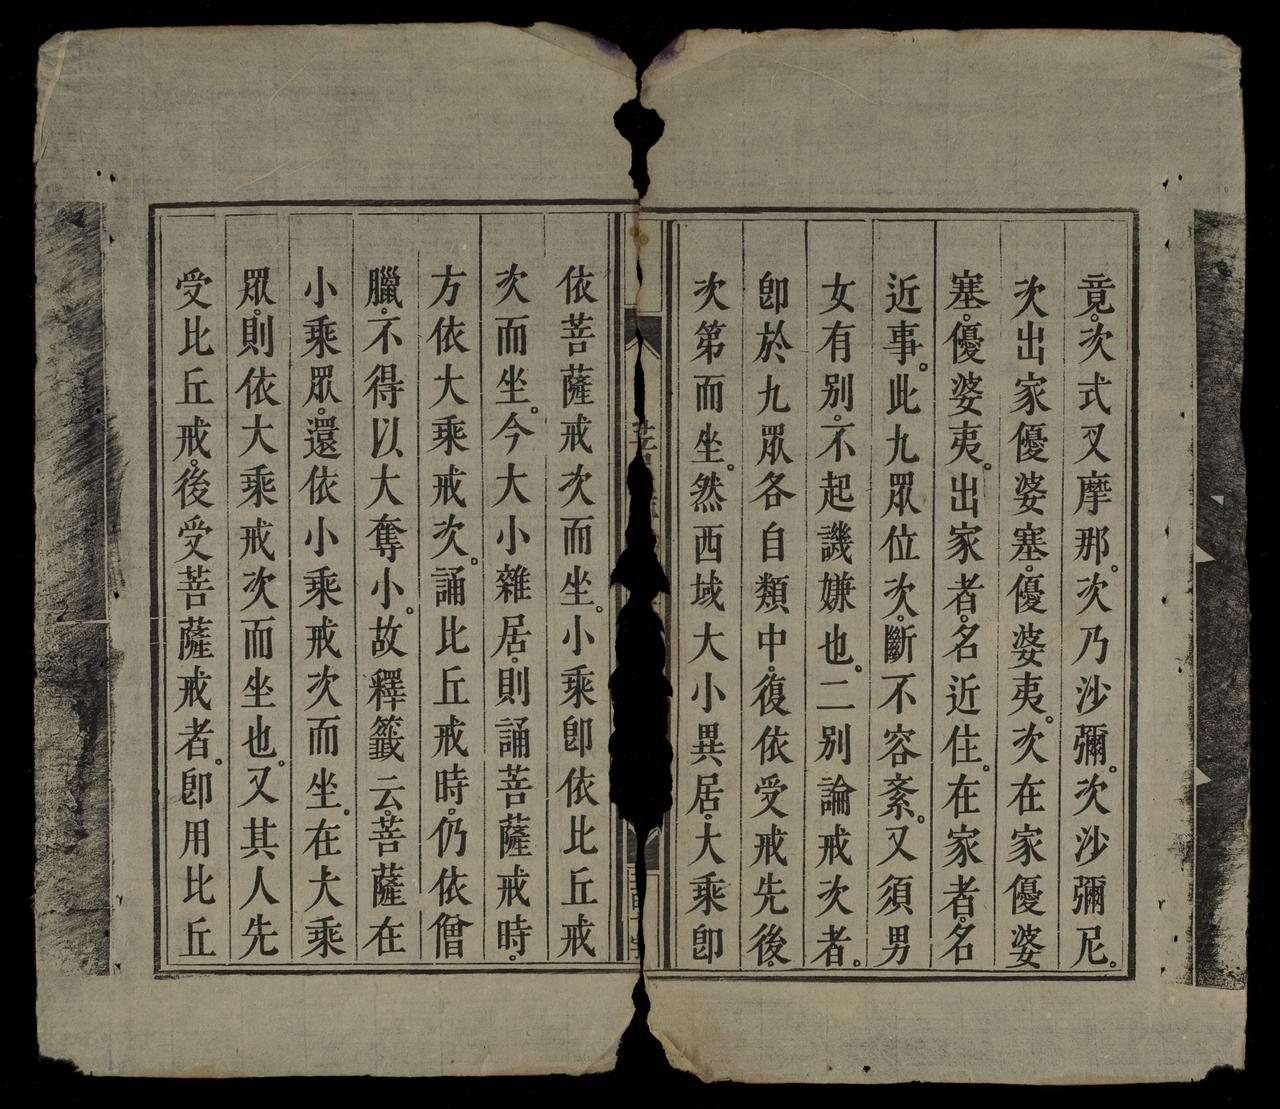 竟。次式叉摩那。次乃沙彌。次沙彌尼。
次出家優婆塞。優婆夷。次在家優婆
塞。優婆夷。出家者。名近住。在家者。名
近事。此九眾位次。斷不容紊。又須男
女有别。不起譏嫌也。二别論戒次者。
卽於九眾各自類中。復依受戒先後。
次第而坐。然西域大小異居。大乘卽
依菩薩戒次而坐。小乘卽依比丘戒
次而坐。今大小雜居。則誦菩薩戒時。
方依大乘戒次。誦比丘戒時。仍依僧
臘。不得以大奪小。故釋籖云。菩薩在
小乘眾。還依小乘戒次而坐。在大乘
眾。則依大乘戒次而坐也。又其人先
受比丘戒。後受菩薩戒者。卽用比丘